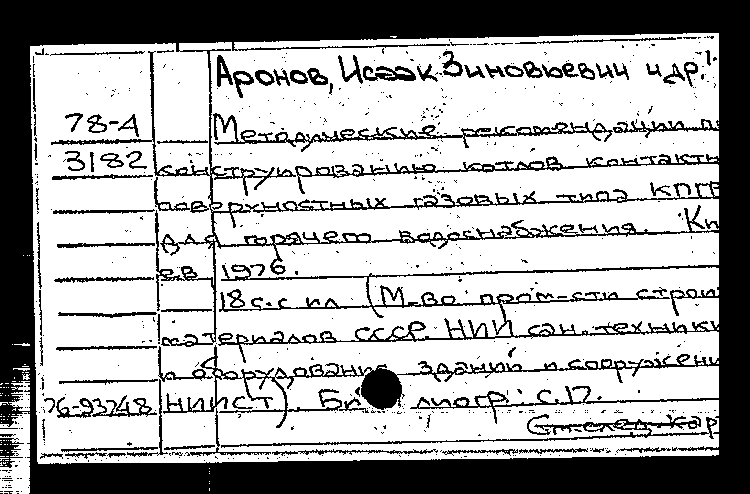 Аронов, Исаак Зиновьевич и др.
78-4 Методические рекомендации п
3182 конструированию котлов контактн
поверхностных газовых типа КПГВ
для горячего водоснабжения. Ки
ев 1976.
18 с. с ил (М-во пром-сти строи
материалов СССР. НИИ сан. техники
и оборудования зданий и сооружени
76-93748 НИИСТ). Библиогр: с. 17.
См. след. кар